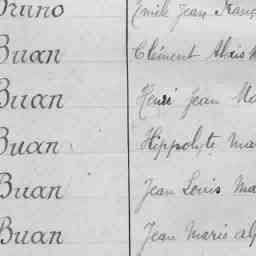 Bruno Emile Jean
Buan Clément Alexis
Buan Henri Jean
Buan Hippolyte
Buan Jean Louis
Buan Jean Marie